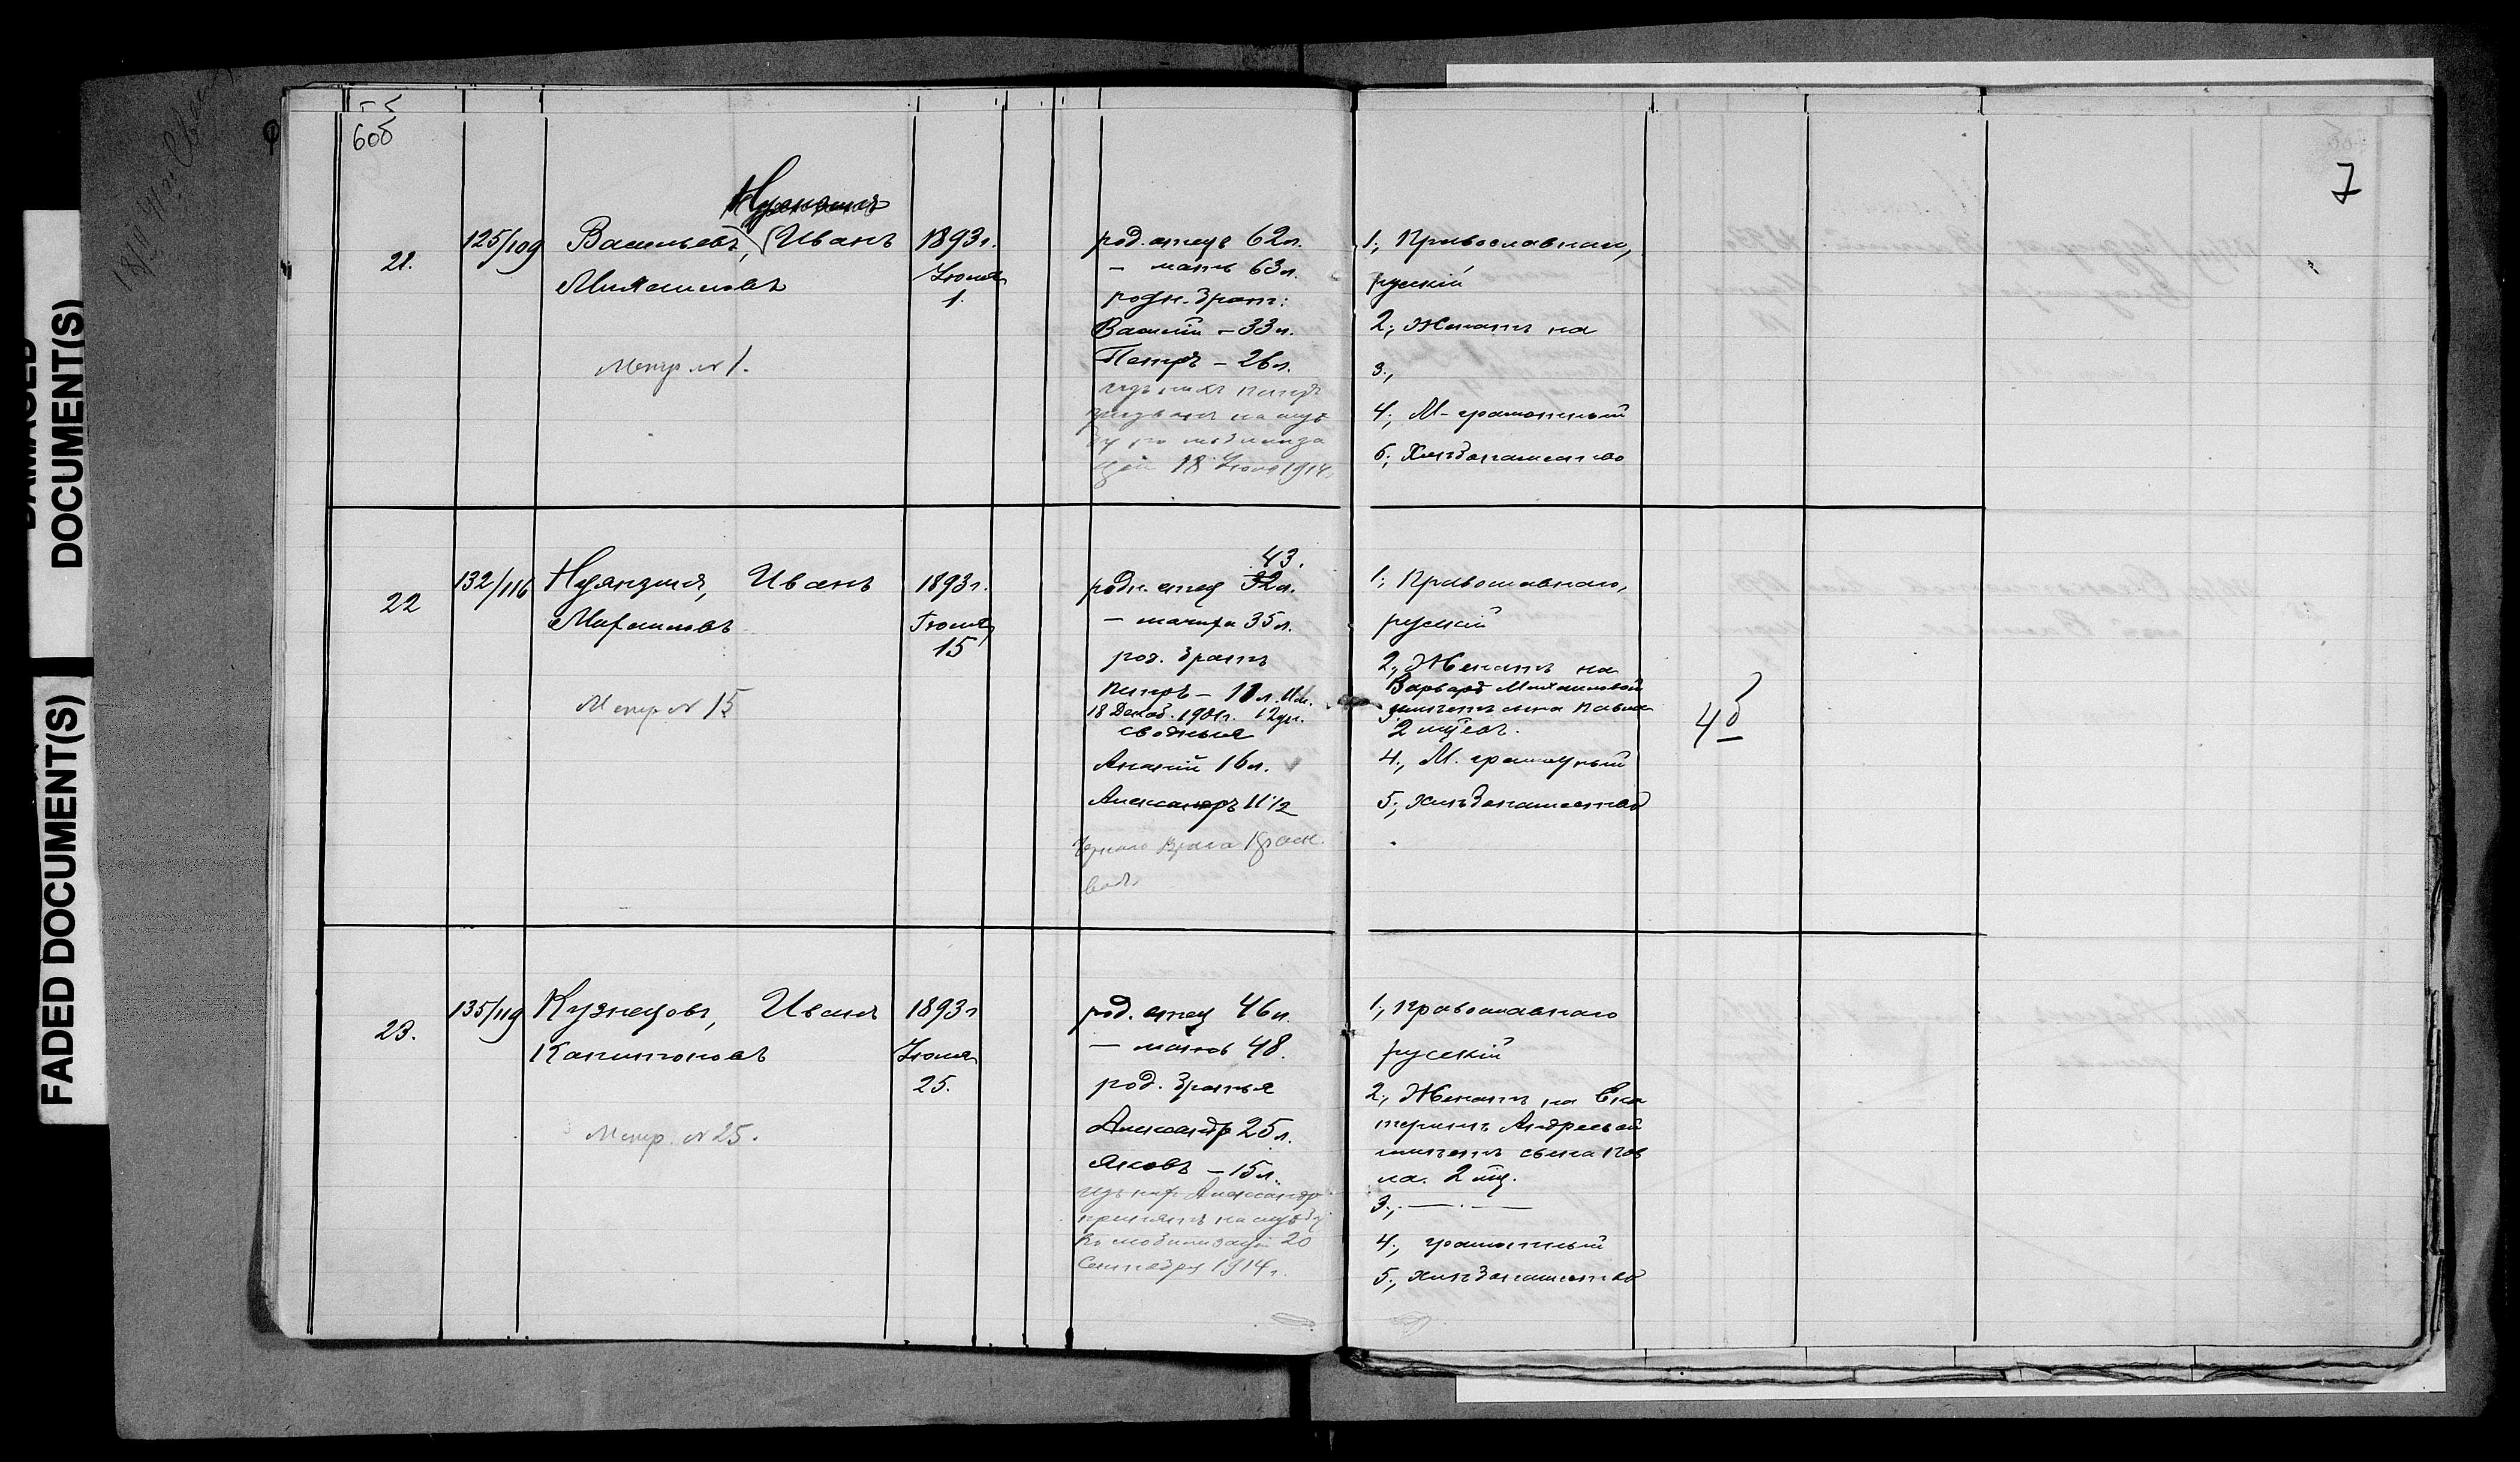 DAMAGED
DOCUMENT(S)
FADED DOCUMENT(S)
6об
7
21.
125/109
Васильевъ, Иванъ
1893г.
Іюля
1.
род. отецъ 62л.
— мать 63л.
родн. брат:
Василій – 33л.
Петръ – 26л.
изъ нихъ Петръ
призванъ на служ
бу по мобилиза
ціи 18 Іюля 1914г.
Метр. № 1.
1, Православнаго,
русскій
2, Женатъ на
3,
4, М-грамотный
5, Хлѣбопашество
22
132/116
Нуянзинъ, Иванъ
1893г.
Іюля
15
Метр. № 15
43.
родн. отец 32л.
— мачиха 35л.
род. братъ
Петръ – 11л.
18 Декаб. 1901г.
сводные
Ананій 16л.
Александръ 11 1/2
1, Православнаго,
русскій
2, Женатъ на
Варварѣ Михаиловой
имѣетъ сына Павла
2 мѣсяц.
4, М. грамотный
5, хлѣбопашество
4б
23.
135/119
Кузнецовъ, Иванъ
Капитоновъ
1893г
Іюля
25.
Метр. № 25.
род. отец 46л.
— мать 48.
род. братья
Александр 25л.
Яковъ – 15л.
изъ них Александръ
принятъ на службу
по мобилизаціи 20
Сентября 1914г.
1, Православнаго
русскій
2, Женатъ на Ека
теринѣ Андреевой
имѣетъ сына Пав
ла. 2 мѣ.
3, — . —
4, грамотный
5, хлѣбопашество